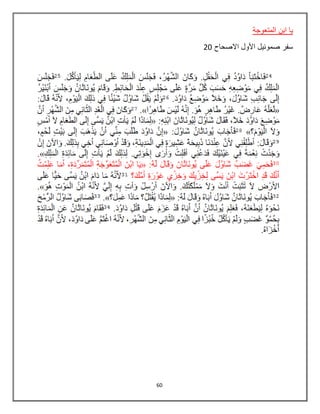 يا ابن المتعوجة
سفر صموئيل الأول الاصحاح 20
24فَاخْتَبَأَ دَاوُدُ فِي الْحَقْلِ. وَكَانَ الشَّهْرُ، فَجَلَسَ الْمَلِكُ عَلَى الطَّعَامِ لِيَأْكُلَ. 25فَجَلَسَ
الْمَلِكُ فِي مَوْضِعِهِ حَسَبَ كُلِّ مَرَّةٍ عَلَى مَجْلِسٍ عِنْدَ الْحَائِطِ. وَقَامَ يُونَاثَانُ وَجَلَسَ أَبْنَيْرُ
إِلَى جَانِبِ شَاوُلَ، وَخَلاَ مَوْضِعُ دَاوُدَ. 26وَلَمْ يَقُلْ شَاوُلُ شَيْئًا فِي ذلِكَ الْيَوْمِ، لأَنَّهُ قَالَ:
«لَعَلَّهُ عَارِضٌ. غَيْرُ طَاهِرٍ هُوَ. إِنَّهُ لَيْسَ طَاهِرًا». 27وَكَانَ فِي الْغَدِ الثَّانِي مِنَ الشَّهْرِ أَنَّ
مَوْضِعَ دَاوُدَ خَلاَ، فَقَالَ شَاوُلُ لِيُونَاثَانَ ابْنِهِ: «لِمَاذَا لَمْ يَأْتِ ابْنُ يَسَّى إِلَى الطَّعَامِ لاَ أَمْسِ
وَلاَ الْيَوْمَ؟» 28فَأَجَابَ يُونَاثَانُ شَاوُلَ: «إِنَّ دَاوُدَ طَلَبَ مِنِّي أَنْ يَذْهَبَ إِلَى بَيْتِ لَحْمٍ،
29وَقَالَ: أَطْلِقْنِي لأَنَّ عِنْدَنَا ذَبِيحَةَ عَشِيرَةٍ فِي الْمَدِينَةِ، وَقَدْ أَوْصَانِي أَخِي بِذلِكَ. وَالآنَ إِنْ
وَجَدْتُ نِعْمَةً فِي عَيْنَيْكَ فَدَعْنِي أُفْلِتُ وَأَرَى إِخْوَتِي. لِذلِكَ لَمْ يَأْتِ إِلَى مَائِدَةِ الْمَلِكِ».
30فَحَمِيَ غَضَبُ شَاوُلَ عَلَى يُونَاثَانَ وَقَالَ لَهُ: «يَا ابْنَ الْمُتَعَوِّجَةِ الْمُتَمَرِّدَةِ، أَمَا عَلِمْتُ
أَنَّكَ قَدِ اخْتَرْتَ ابْنَ يَسَّى لِخِزْيِكَ وَخِزْيِ عَوْرَةِ أُمِّكَ؟ 31لأَنَّهُ مَا دَامَ ابْنُ يَسَّى حَيًّا عَلَى
الأَرْضِ لاَ تُثْبَتُ أَنْتَ وَلاَ مَمْلَكَتُكَ. وَالآنَ أَرْسِلْ وَأْتِ بِهِ إِلَيَّ لأَنَّهُ ابْنُ الْمَوْتِ هُوَ».
32فَأَجَابَ يُونَاثَانُ شَاوُلَ أَبَاهُ وَقَالَ لَهُ: «لِمَاذَا يُقْتَلُ؟ مَاذَا عَمِلَ؟». 33فَصَابَى شَاوُلُ الرُّمْحَ
نَحْوَهُ لِيَطْعَنَهُ، فَعَلِمَ يُونَاثَانُ أَنَّ أَبَاهُ قَدْ عَزَمَ عَلَى قَتْلِ دَاوُدَ. 34فَقَامَ يُونَاثَانُ عَنِ الْمَائِدَةِ
بِحُمُوِّ غَضَبٍ وَلَمْ يَأْكُلْ خُبْزًا فِي الْيَوْمِ الثَّانِي مِنَ الشَّهْرِ، لأَنَّهُ اغْتَمَّ عَلَى دَاوُدَ، لأَنَّ أَبَاهُ قَدْ
أَخْزَاهُ.
60